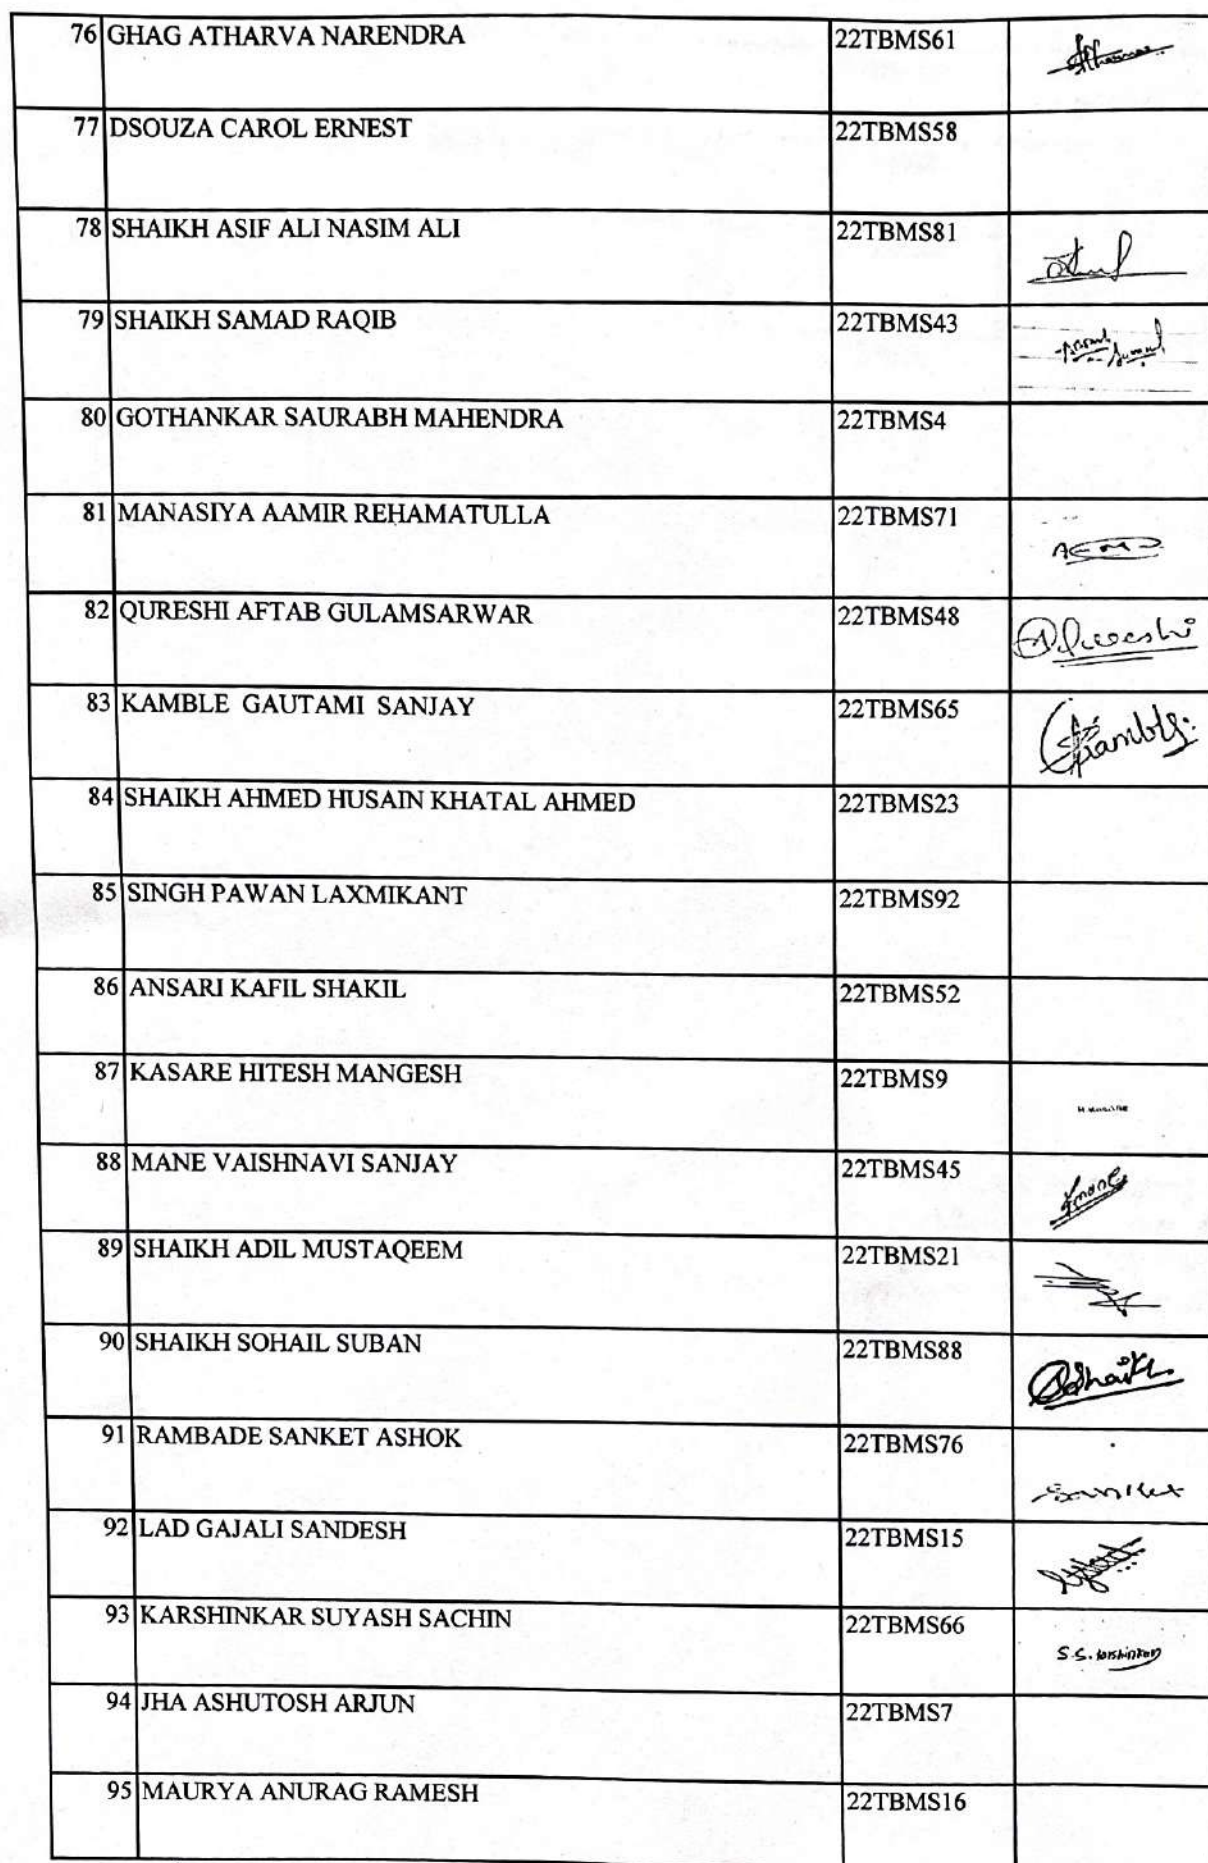 76 GHAG ATHARVA NARENDRA 22TBMS61
77 DSOUZA CAROL ERNEST 22TBMS58
78 SHAIKH ASIF ALI NASIM ALI 22TBMS81
79 SHAIKH SAMAD RAQIB 22TBMS43
80 GOTHANKAR SAURABH MAHENDRA 22TBMS4
81 MANASIYA AAMIR REHAMATULLA 22TBMS71
82 QURESHI AFTAB GULAMSARWAR 22TBMS48
83 KAMBLE GAUTAMI SANJAY 22TBMS65
84 SHAIKH AHMED HUSAIN KHATAL AHMED 22TBMS23
85 SINGH PAWAN LAXMIKANT 22TBMS92
86 ANSARI KAFIL SHAKIL 22TBMS52
87 KASARE HITESH MANGESH 22TBMS9
88 MANE VAISHNAVI SANJAY 22TBMS45
89 SHAIKH ADIL MUSTAQEEM 22TBMS21
90 SHAIKH SOHAIL SUBAN 22TBMS88
91 RAMBADE SANKET ASHOK 22TBMS76 Sanket
92 LAD GAJALI SANDESH 22TBMS15
93 KARSHINKAR SUYASH SACHIN 22TBMS66 S.S.
94 JHA ASHUTOSH ARJUN 22TBMS7
95 MAURYA ANURAG RAMESH 22TBMS16